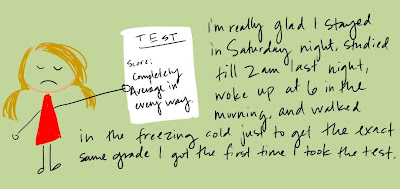 TEST
Score:
Completely
Average in
every way.
i'm really glad I stayed
in Saturday night, studied
till 2am last night,
woke up at 6 in the
morning, and walked
in the freezing cold just to get the exact
same grade I got the first time I took the test.